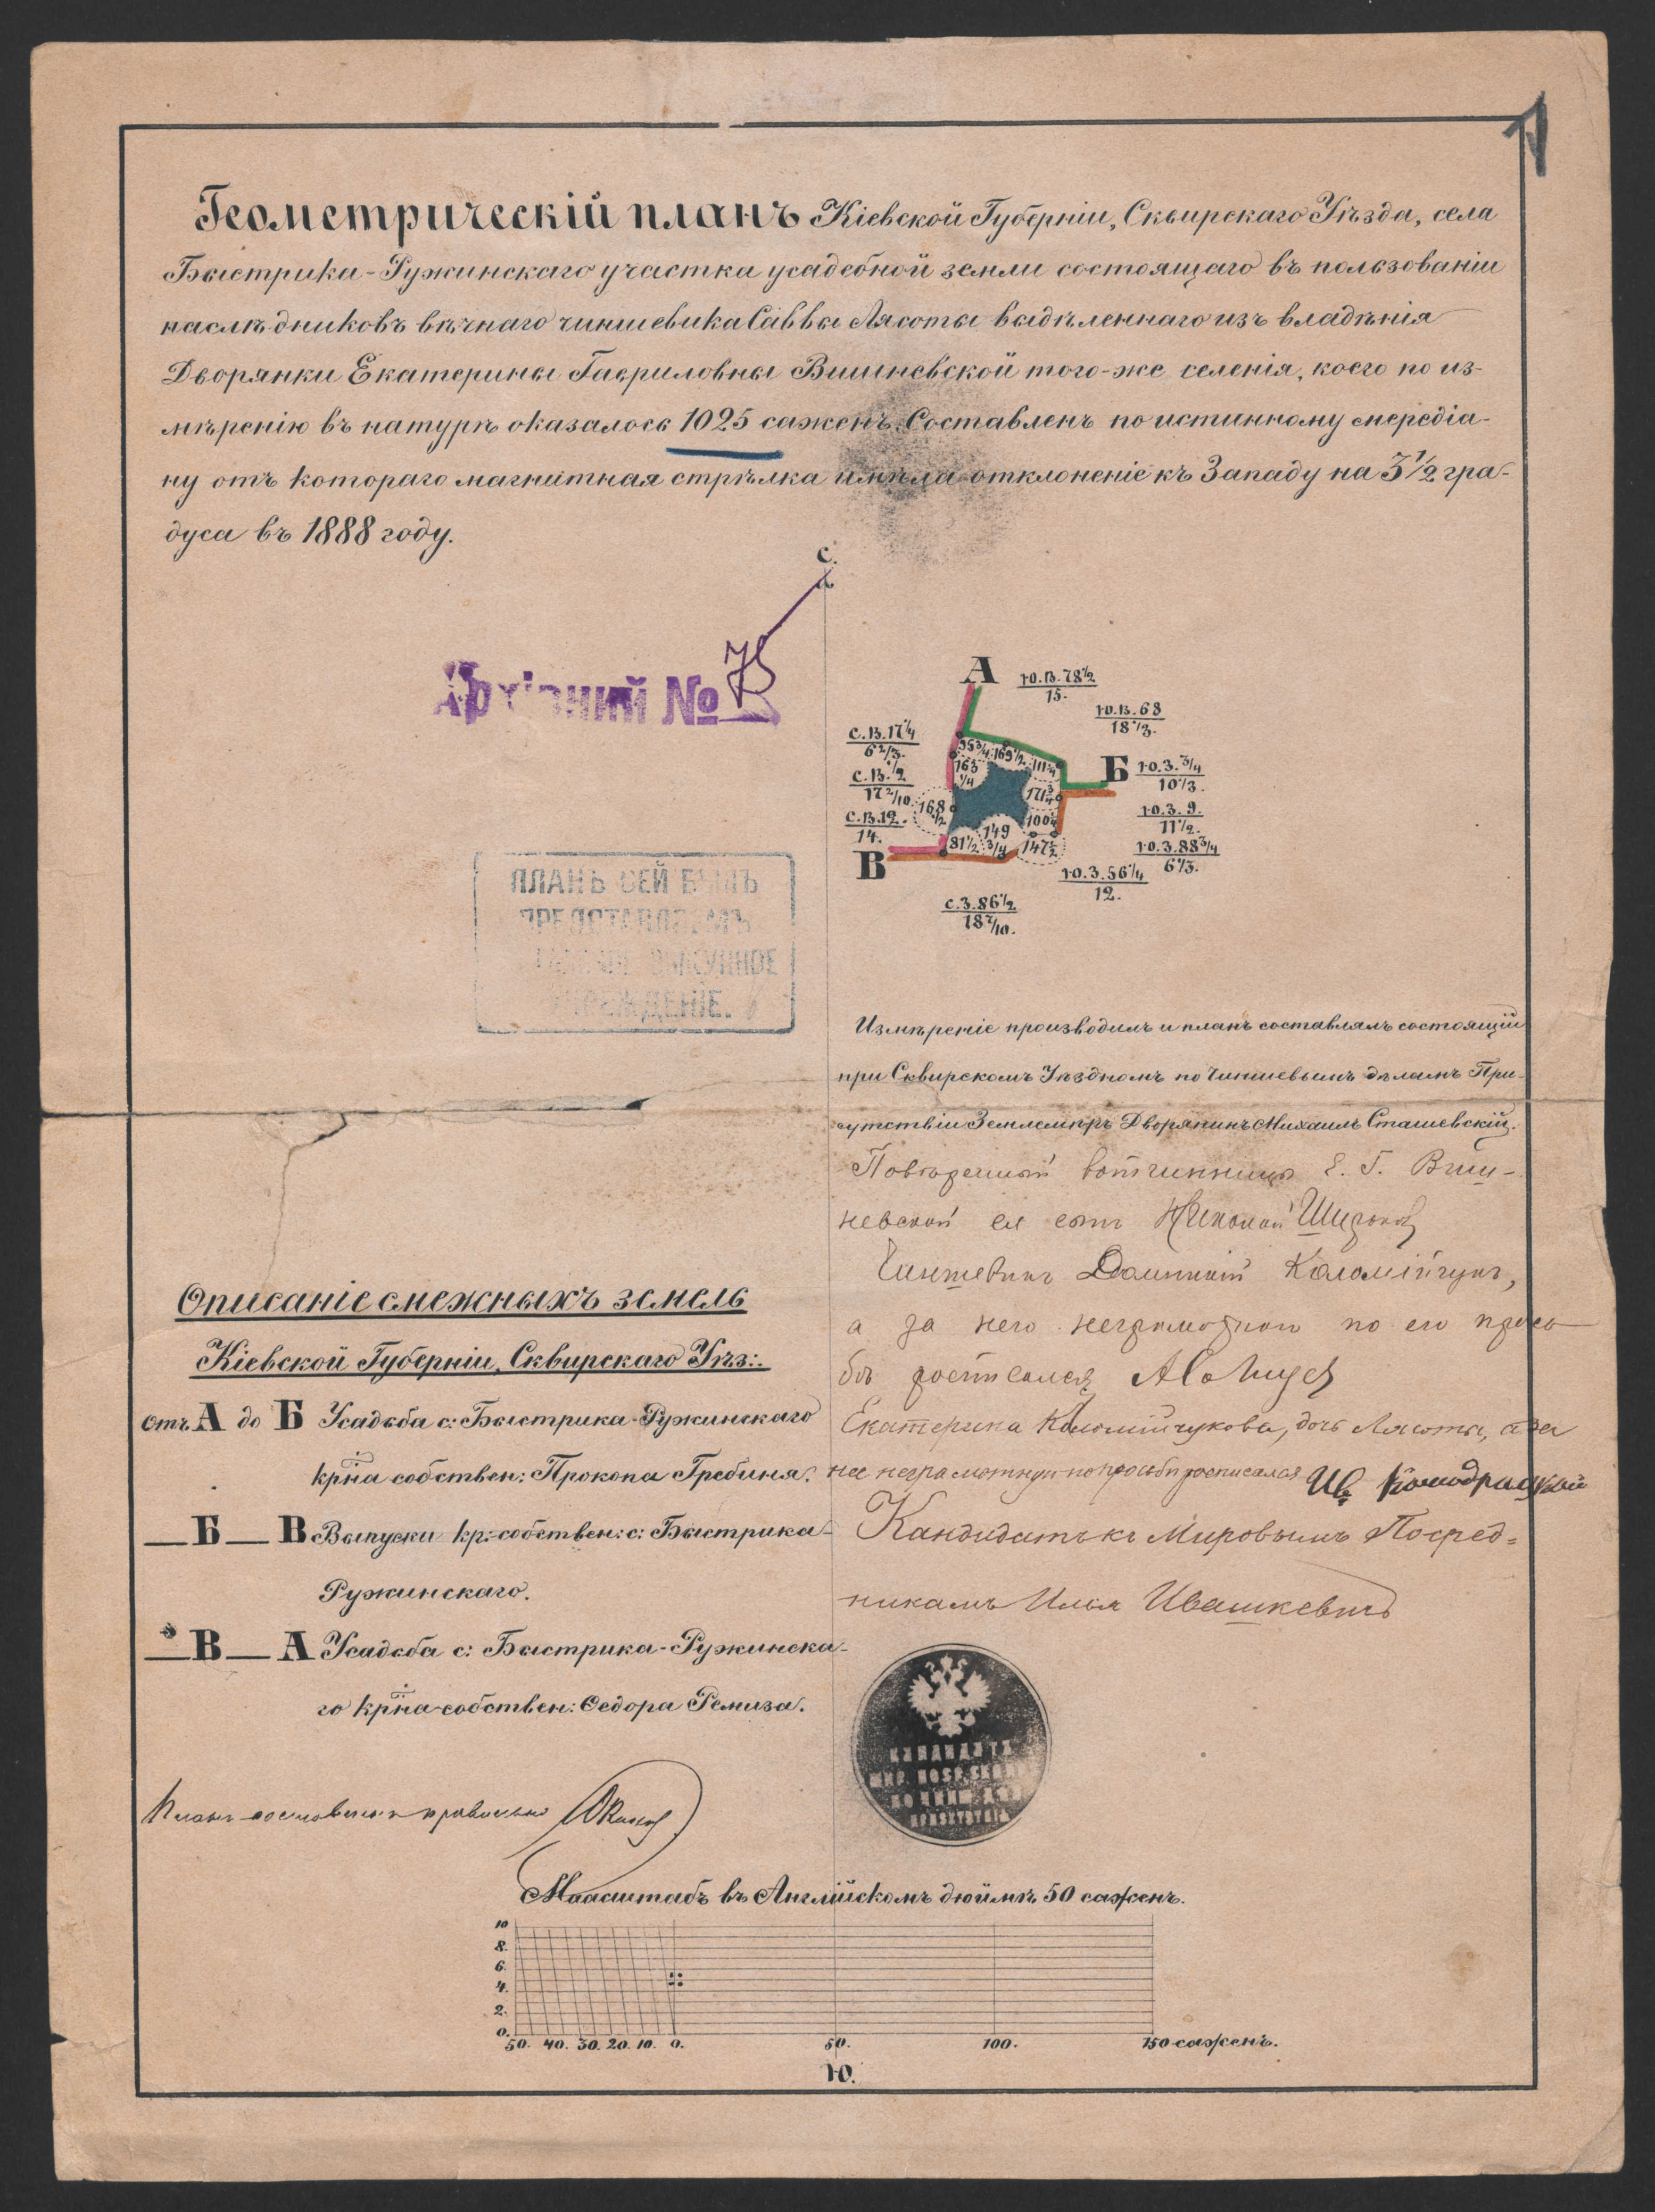 Геометрическій планъ Кіевской Губерніи, Сквирскаго Уѣзда, села
Быстрика-Ружинскаго участка усадебной земли состоящаго въ пользованіи
наслѣдниковъ вѣчнаго чиншевика Саввы Лясоты выдѣленнаго изъ владѣнія
Дворянки Екатерины Гавриловны Вишневской того-же селенія, коего по из-
мѣренію въ натурѣ оказалось 1025 саженъ. Составленъ по истинному мередіа-
ну отъ котораго магнитная стрѣлка имѣла отклоненіе къ Западу на 3½ гра-
дуса въ 1888 году.
С.
Архівний № 75
А
Ю.В.78½
15.
Ю.В.68
18⅓.
С.В.17¼
6⅔.
С.В.½
17 2/10.
С.В.12.
14.
Б
Ю.З.¾
10⅓.
Ю.З.9.
11½.
Ю.З.88¾
6⅓.
Ю.З.56¼
12.
В
С.З.86½
18 7/10.
95¾
169½
111¼
163¼
171¾
168½
100¼
149¾
81½
147½
ПЛАНЪ СЕЙ БЫЛЪ
ПРЕДСТАВЛЯЕМЪ
ВЫКУПНОЕ
УЧРЕЖДЕНІЕ.
Измѣреніе производилъ и планъ составлялъ состоящій
при Сквирскомъ Уѣздномъ по Чиншевымъ дѣламъ При-
сутствіи Землемѣръ Дворянинъ Михаилъ Сташевскій.
Повѣренный вотчинницы Е. Г. Виш-
невской ея сынъ Николай
Чиншевикъ Коломійчукъ,
а за него неграмотнаго по его прось
бѣ росписался
Екатерина Коломійчукова, дочь Лясоты, а за
нее неграмотную по просьбѣ росписался Ив.
Кандидатъ къ Мировымъ Посред=
никамъ Илья Ивашкевичъ
Описаніе смежныхъ земель
Кіевской Губерніи, Сквирскаго Уѣз:.
отъ А до Б Усадьба с: Быстрика-Ружинскаго
крна собствен: Прокопа Гребиня.
— Б — В Выпуски кр: собствен: с: Быстрика-
Ружинскаго.
— В — А Усадьба с: Быстрика-Ружинска-
го крна собствен: Ѳедора Ремиза.
КАНДИДАТЪ
МИР. ПОСР. СКВ.
ПО ЧИНШ.
Планъ составленъ правильно
Маасштабъ въ Англійскомъ дюймѣ 50 саженъ.
10
8.
6.
4.
2.
0.
50. 40. 30. 20. 10. 0. 50. 100. 150 саженъ.
Ю.